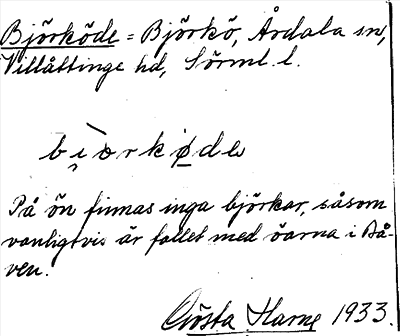 Björköde = Björkö, Årdala sn,
Villåttinge hd, Sörml. l.
bi̯òrkøde
På ön finnas inga björkar, såsom
vanligtvis är fallet med öarna i Bå-
ven.
Gösta Harne 1933.